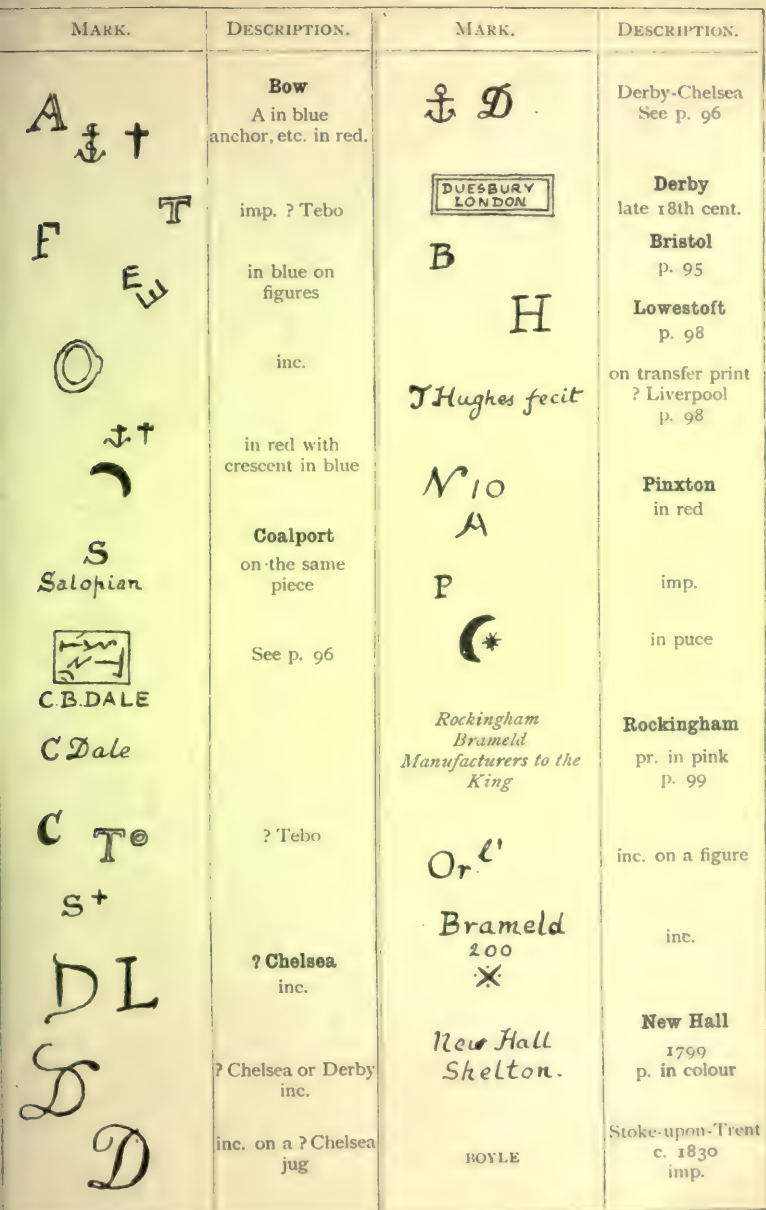 MARK.
DESCRIPTION.
Bow
A
A in blue
anchor, etc. in red.
T
imp. ? Tebo
F
E
E
in blue on
figures
O
inc.
in red with
crescent in blue
Coalport
S
Salopian
on the same
piece
See p. 96
C.B.DALE
C Dale
C To
? Tebo
S+
? Chelsea
D L
inc.
D
? Chelsea or Derby
inc.
D
inc. on a ? Chelsea
jug
MARK.
DESCRIPTION.
D
Derby-Chelsea
See p. 96
DUESBURY
LONDON
Derby
late 18th cent.
B
Bristol
p. 95
H
Lowestoft
p. 98
T Hughes fecit
on transfer print
? Liverpool
p. 98
N 10
A
Pinxton
in red
P
imp.
in puce
Rockingham
Brameld
Manufacturers to the
King
Rockingham
pr. in pink
p. 99
Or l'
inc. on a figure
Brameld
200
inc.
New Hall
Shelton.
New Hall
1799
p. in colour
BOYLE
Stoke-upon-Trent
c. 1830
imp.